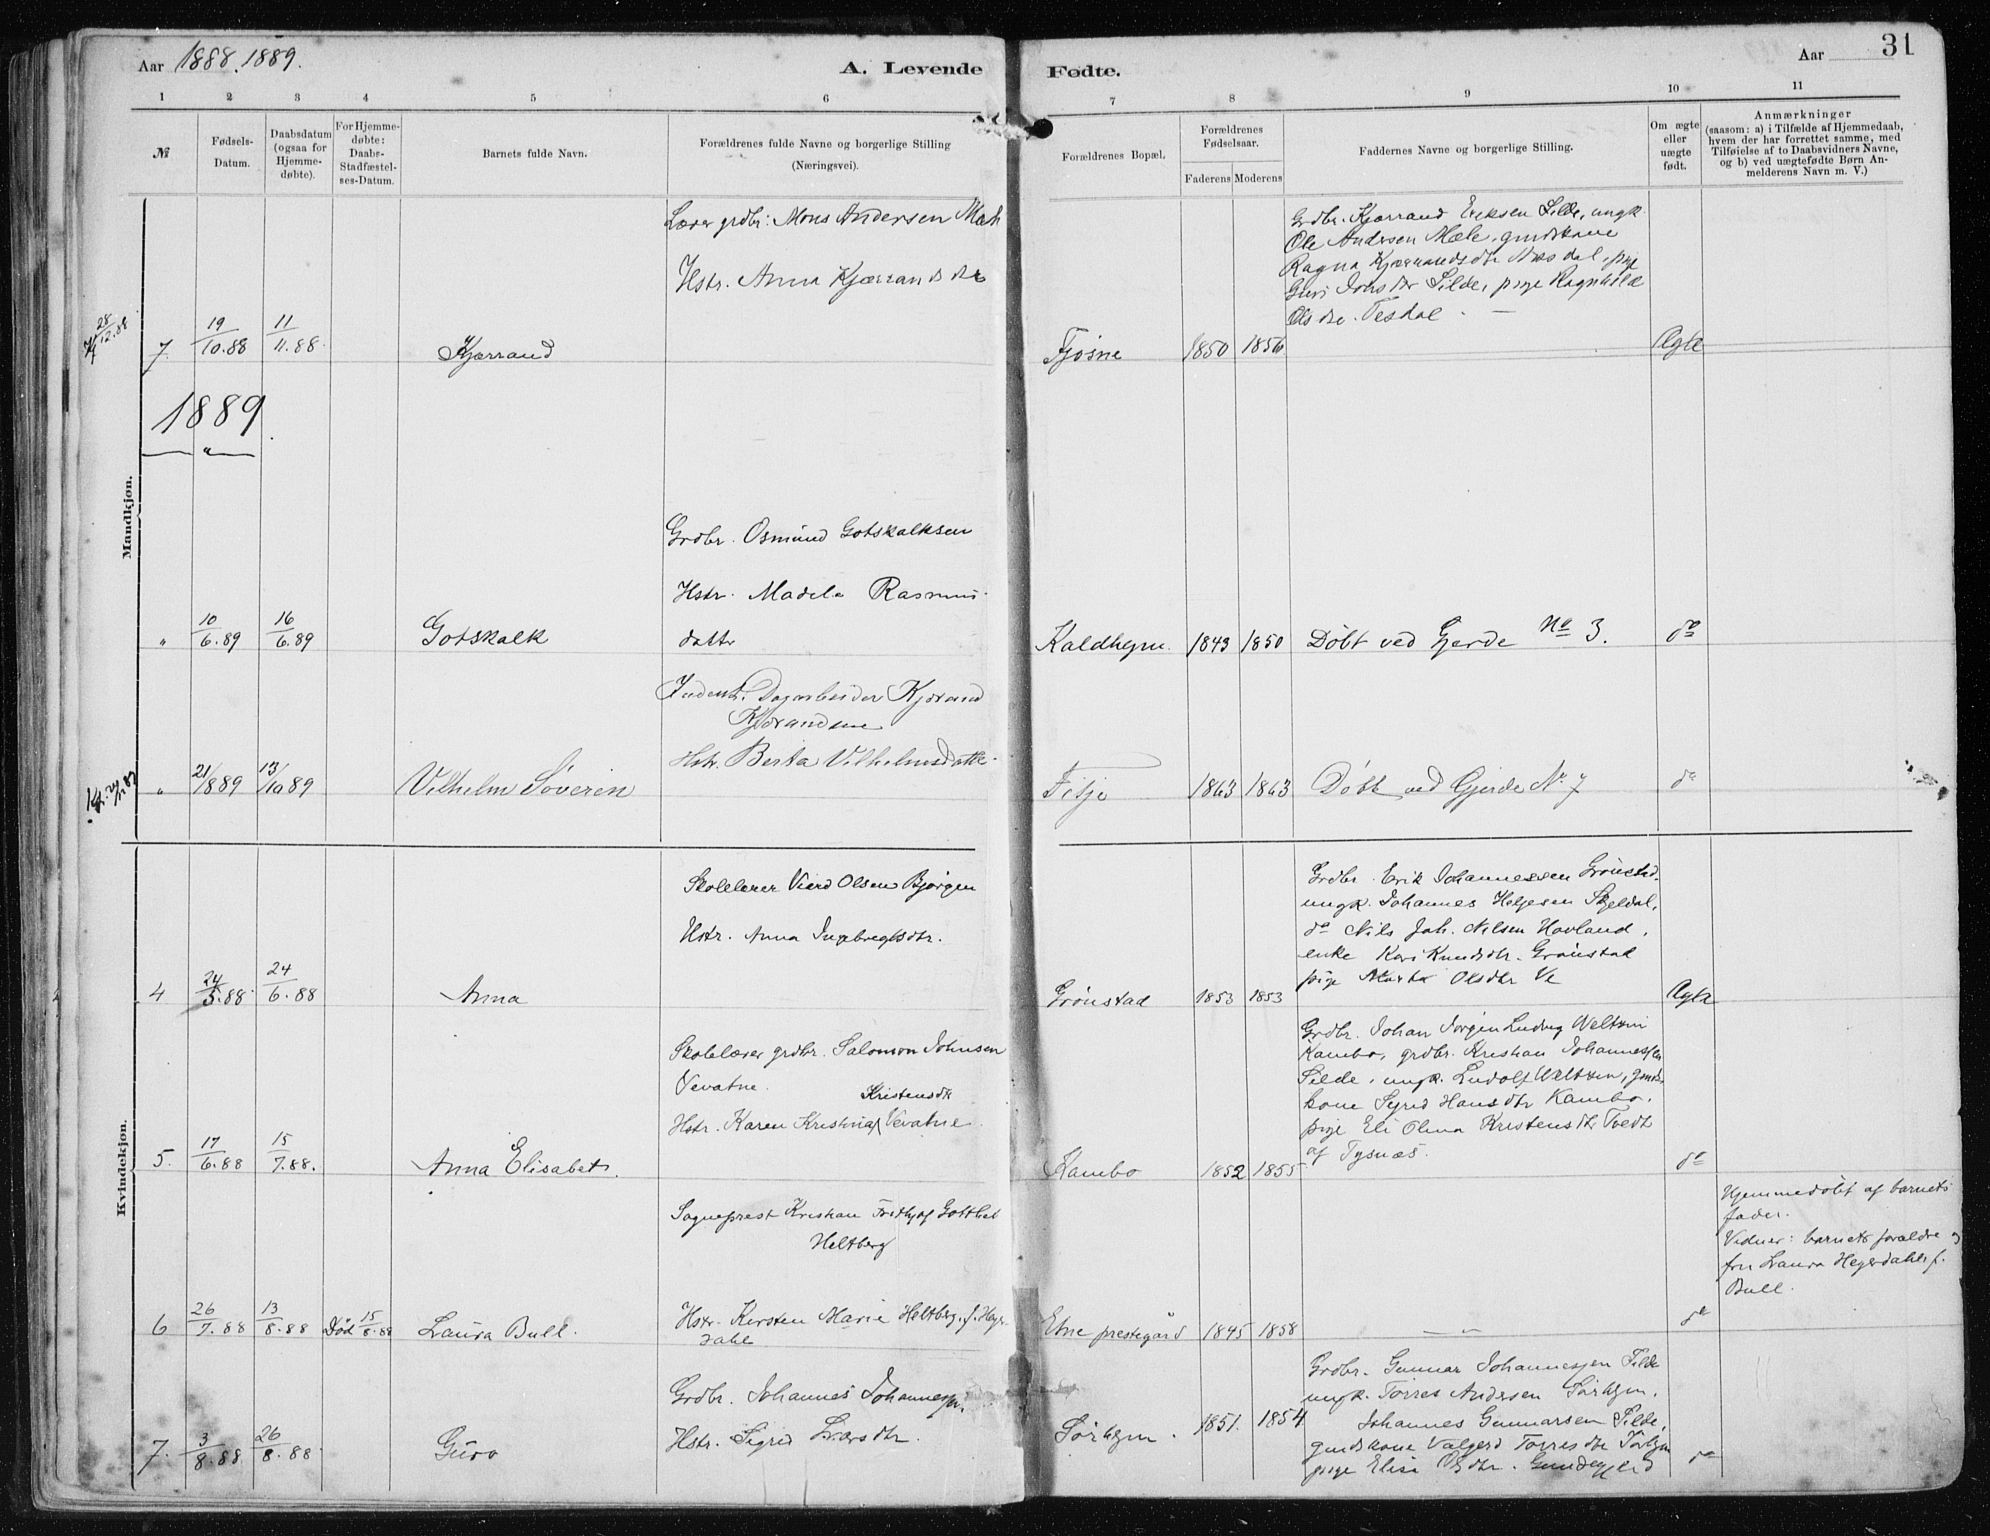 Aar 1888. 1889.
A. Levende Fødte.
Aar
31
1 2 3 4 5 6 7 8 9 10 11
№
Fødsels-Datum.
Daabsdatum (ogsaa for Hjemme-døbte).
For Hjemme-døbte: Daabs-Stadfæstel-ses-Datum.
Barnets fulde Navn.
Forældrenes fulde Navne og borgerlige Stilling
(Næringsvei).
Forældrenes Bopæl.
Forældrenes Fødselsaar.
Faderens Moderens
Faddernes Navne og borgerlige Stilling.
Om ægte eller uægte født.
Anmærkninger
(saasom: a) i Tilfælde af Hjemmedaab,
hvem der har forrettet samme, med
Tilføielse af to Daabsvidners Navne,
og b) ved uægtefødte Børn An-
melderens Navn m. V.)
Mandkjøn.
28/12.88
7. 19/10.88 11/11.88. Kjærrand
Lærer grdbr: Mons Andersen
Hstr. Anna Kjærrandsdtr
Fjøsne 1850 1856
Grdbr. Kjærrand Eriksen Silde, ungk.
Ole Andersen Mæle, gmdskone
Ragna Kjærrandsdtr Næsdal, pige
Guri Jonsdtr Silde, pige Ragnhild
Olsdtr. Tesdal. —
Ægte
1889.
" 10/6.89 16/6.89 Gotskalk
Grdbr. Osmund Gotskalksen
Hstr. Madela Rasmus-
datter
Kaldhejm. 1843 1850 Døbt ved Gjerde No 3. do
" 21/8 89 13/10 89 Vilhelm Søverin
Dagarbeider Kjørand
Kjørandsen
Hstr. Berta Vilhelmsdatter
Fitje 1863 1863 Døbt ved Gjerde No 7 do
Kvindekjøn.
4 24/5.88 24/6.88 Anna
Skolelærer Vierd Olsen Bjørgen
Hstr. Anna Ingebregtsdtr.
Grønstad 1853 1853
Grdbr. Erik Johannessen Grønstad,
ungk. Johannes Helgesen Skjeldal,
do Nils Joh. Nilsen Hovland,
enke Kari Knudsdtr. Grønstad
pige Marta Olsdtr Ve
Ægte
5. 17/6.88 15/7.88. Anna Elisabet.
Skolelærer grdbr. Salomon Johnsen
Vevatne.
Hstr. Karen Kristina Kristensdtr Vevatne.
Kambo 1852 1855
Grdbr. Johan Jørgen Ludvig Weltzin
Kambo, grdbr. Kristian Johannessen
Silde, ungk. Ludolf Weltzin, gmds-
kone Sigrid Hansdtr Kambo,
pige Eli Olina Kristensdtr Tvedt
af Tysnæs.
do
6 26/7.88 13/8.88 Død 15/8.88 Laura Bull.
Sogneprest Kristian Gottlieb
Heltberg
Hstr. Kirsten Marie Heltberg, f. Heyer-
dahl
Etne prestegård 1845 1858 —"— do
Hjemmedøbt af barnets
fader.
Vidner: barnets forældre og
fru Laura Heyerdahl f.
Bull.
7. 3/8.88 26/8.88 Guro
Grdbr. Johannes Johannessen.
Hstr. Sigrid Larsdtr.
Sørhejm. 1851. 1854
Grdbr. Gunnar Johannesjen Silde
ungk. Torres Andersen Sørhejm,
Johannes Gunnarsen Silde,
gmdskone Valgerd Torresdtr Sørhejm
pige Elisi Olsdtr.
do